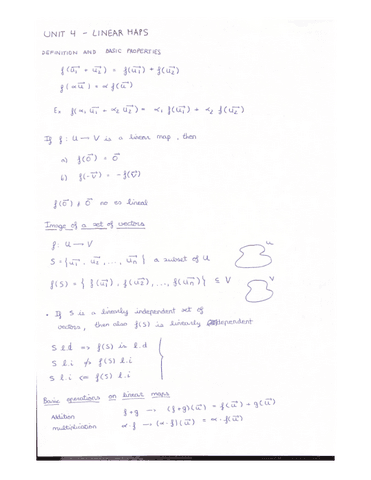 UNIT 4 - LINEAR MAPS
DEFINITION AND BASIC PROPERTIES
f(u₁⃗ + u₂⃗) = f(u₁⃗) + f(u₂⃗)
f(αu⃗) = αf(u⃗)
Ex f(α₁u₁⃗ + α₂u₂⃗) = α₁f(u₁⃗) + α₂f(u₂⃗)
If f: U → V is a linear map, then
a) f(0⃗) = 0⃗
b) f(-v⃗) = -f(v⃗)
f(0⃗) ≠ 0⃗ no es lineal
Image of a set of vectors
f: U → V
S = {u₁⃗, u₂⃗, ..., uₙ⃗} a subset of U
U
f(S) = {f(u₁⃗), f(u₂⃗), ..., f(uₙ⃗)} ⊆ V
V
• If S is a linearly independent set of
vectors, then also f(S) is linearly dependent
S l.d => f(S) is l.d
S l.i ≠> f(S) l.i
S l.i <= f(S) l.i
Basic operations on linear maps
Addition f+g → (f+g)(u⃗) = f(u⃗) + g(u⃗)
multiplication α·f → (α·f)(u⃗) = α·f(u⃗)